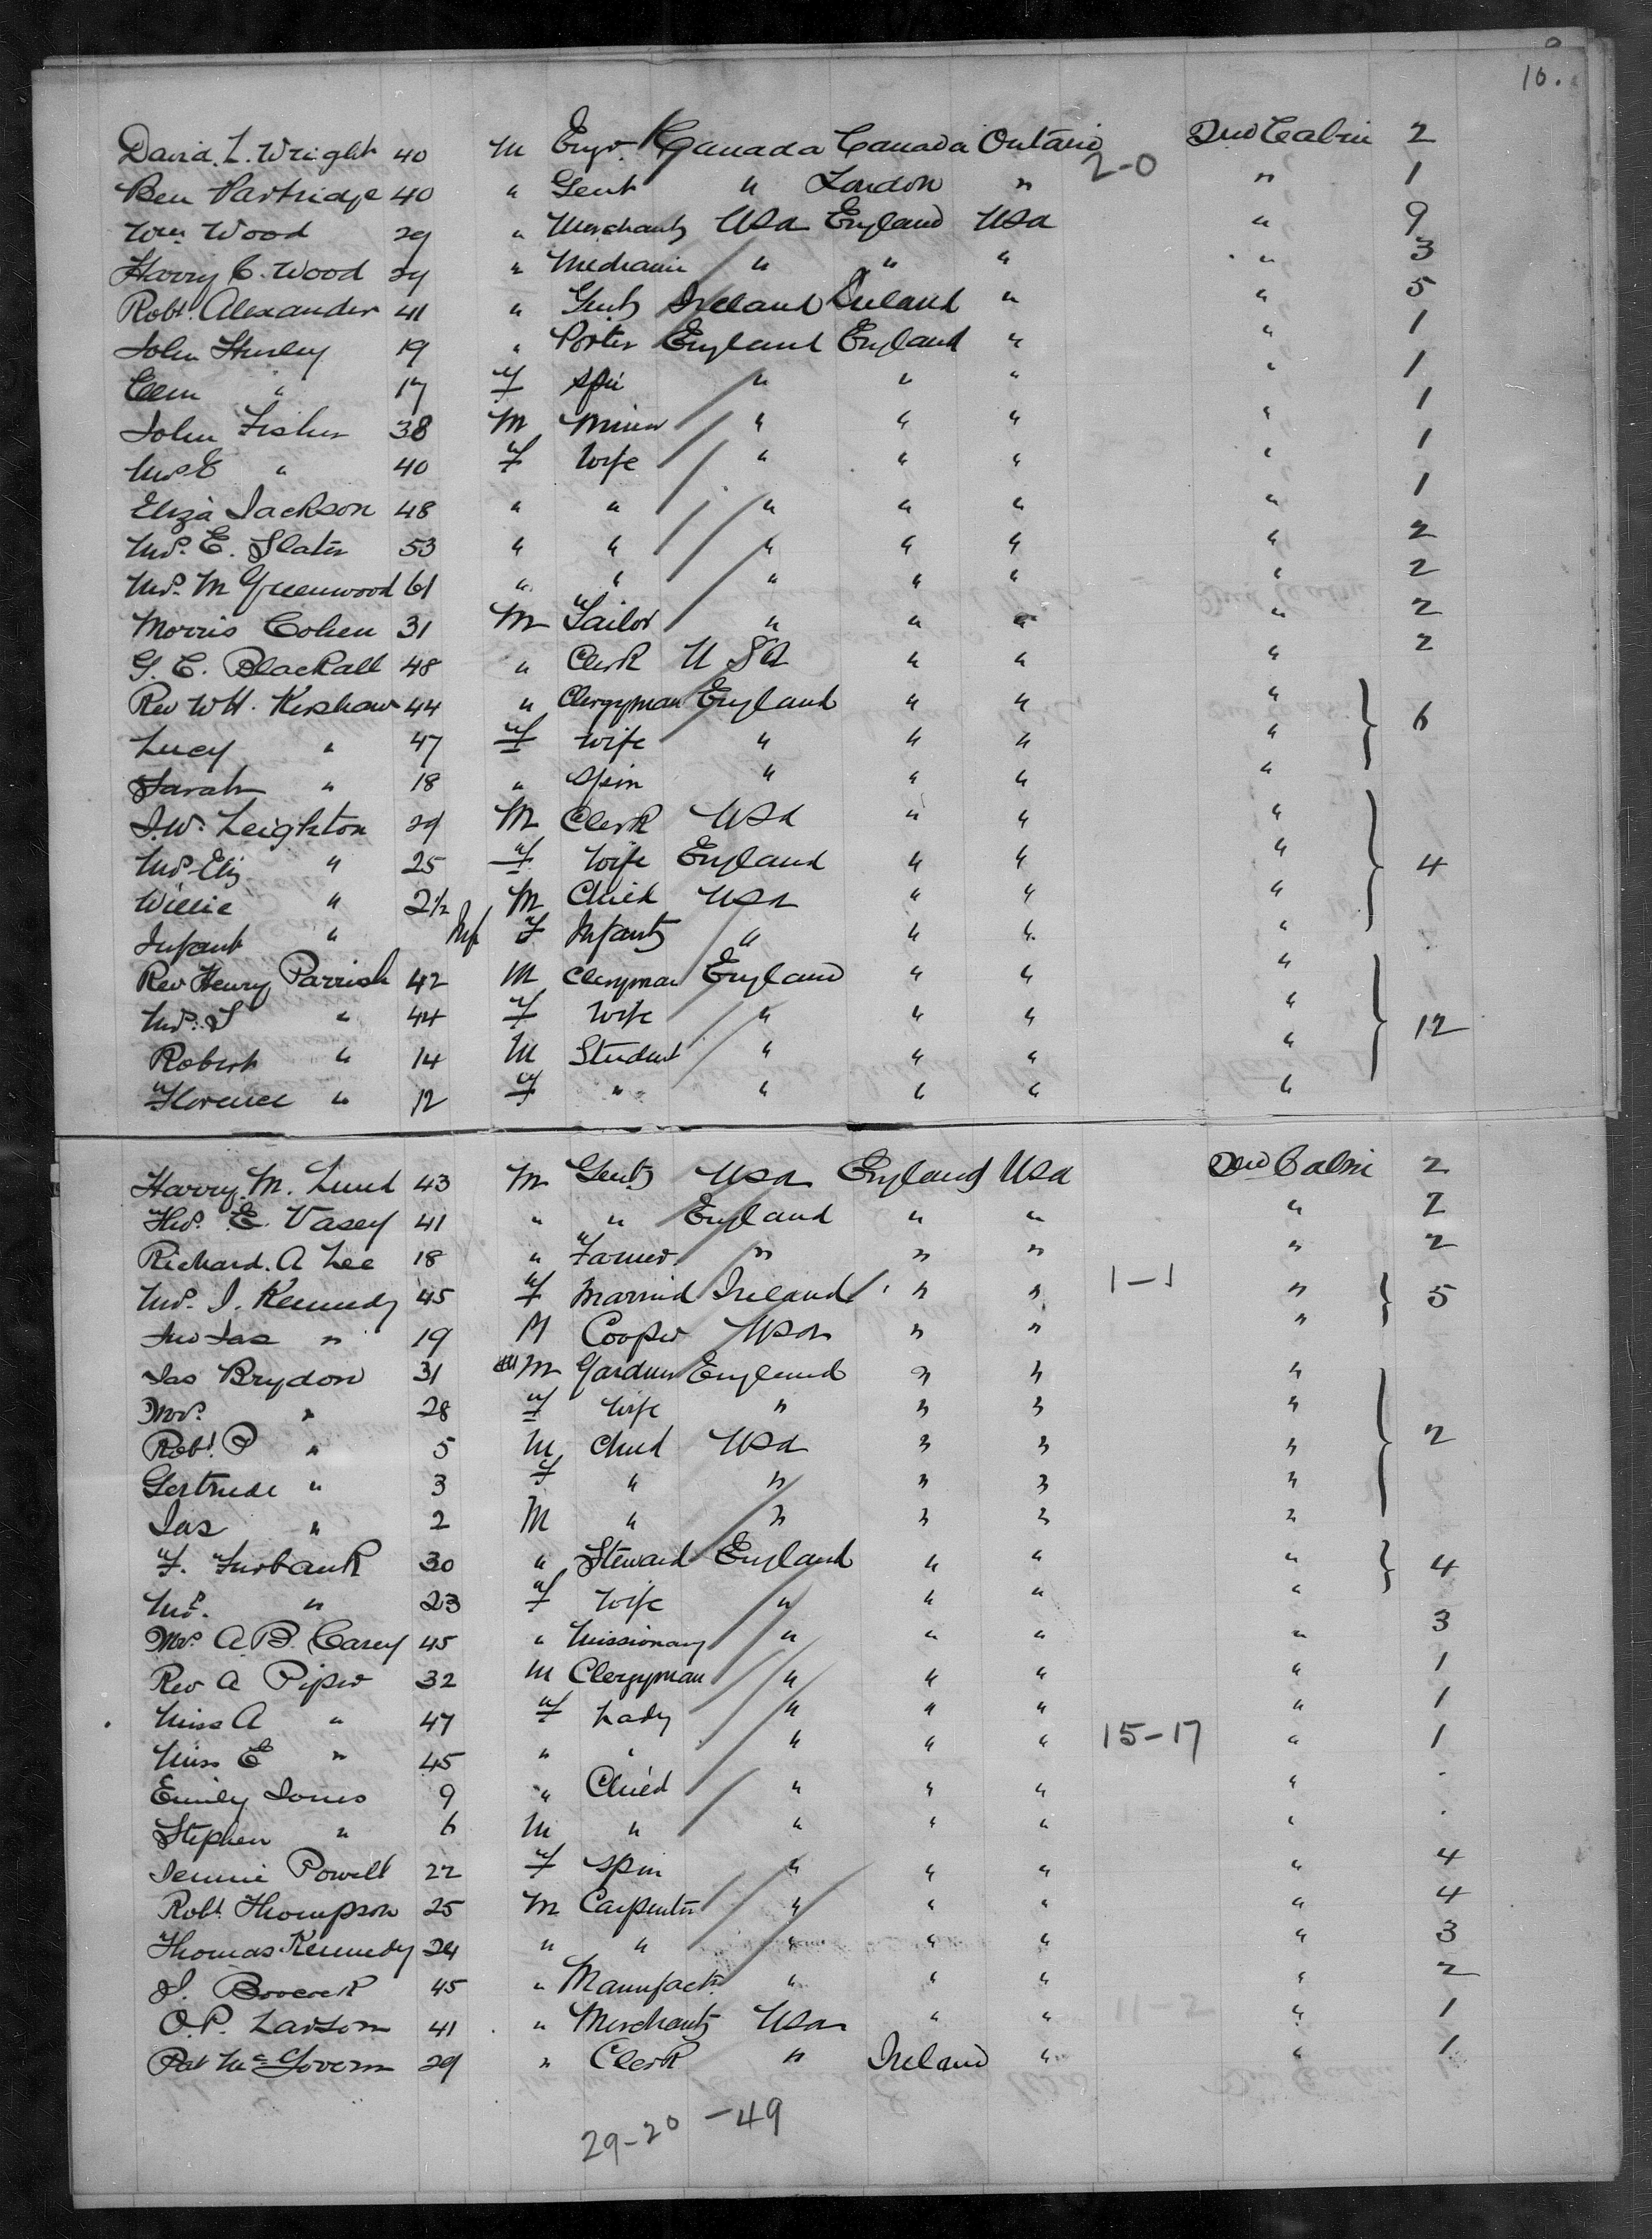 10.
David. L. Wright 40 M Engr. Canada Canada Ontario 2-0 2nd Cabin 2
Ben Partridge 40 " Gent " London " " 1
Wm. Wood 29 " Merchant USA England USA " 9
Harry C. Wood 29 " Mechanic " " " " 3
Robt. Alexander 41 " Gent Ireland Ireland " " 5
John Hurley 19 " Porter England England " " 1
" 17 F Spin " " " " 1
John Fisher 38 M Miner " " " " 1
Mrs E " 40 F Wife " " " " 1
Eliza Jackson 48 " " " " " " 1
Mrs. E. Slater 53 " " " " " " 2
Mrs. M Greenwood 61 " " " " " " 2
Morris Cohen 31 M Tailor " " " " 2
G. C. Blackall 48 " Clerk U S A " " " 2
Rev W H. Kershaw 44 " Clergyman England " " " 6
Lucy " 47 F Wife " " " "
Sarah " 18 " Spin " " " "
J. W. Leighton 29 M Clerk USA " " " 4
Mrs Eliz " 25 F Wife England " " "
Willie " 2½ M Child USA " " "
Infant " Inf F Infant " " " "
Rev Henry Parrish 42 M Clergyman England " " " 12
Mrs. S " 44 F Wife " " " "
Robert " 14 M Student " " " "
Florence " 12 F " " " " "
Harry. M. Lund 43 M Gent USA England USA 2nd Cabin 2
E. Vasey 41 " " England " " " 2
Richard. A Lee 18 " Farmer " " " " 2
Mrs. J. Kennedy 45 F Married Ireland " " 1-1 " 5
Jno Jas " 19 M Cooper USA " " "
Jas Brydon 31 M Gardner England " " " 2
Mrs. " 28 F Wife " " " "
Robt. P " 5 M Child USA " " "
Gertrude " 3 F " " " " "
Jas " 2 M " " " " "
F. Furbank 30 " Steward England " " " 4
Mrs. " 23 F Wife " " " "
Mrs. A. B. Carey 45 " Missionary " " " " 3
Rev A Piper 32 M Clergyman " " " " 1
Miss A " 47 F Lady " " " " 1
Miss E " 45 " " " " " 15-17 " 1
Emily Jones 9 " Child " " " "
Stephen " 6 M " " " " "
Jennie Powell 22 F Spin " " " " 4
Robt. Thompson 25 M Carpenter " " " " 4
Thomas Kennedy 24 " " " " " " 3
45 " Manufactr. " " " " 2
O. P. Larson 41 " Merchant USA " " 11-2 " 1
Pat McGovern 29 " Clerk " Ireland " " 1
29-20-49